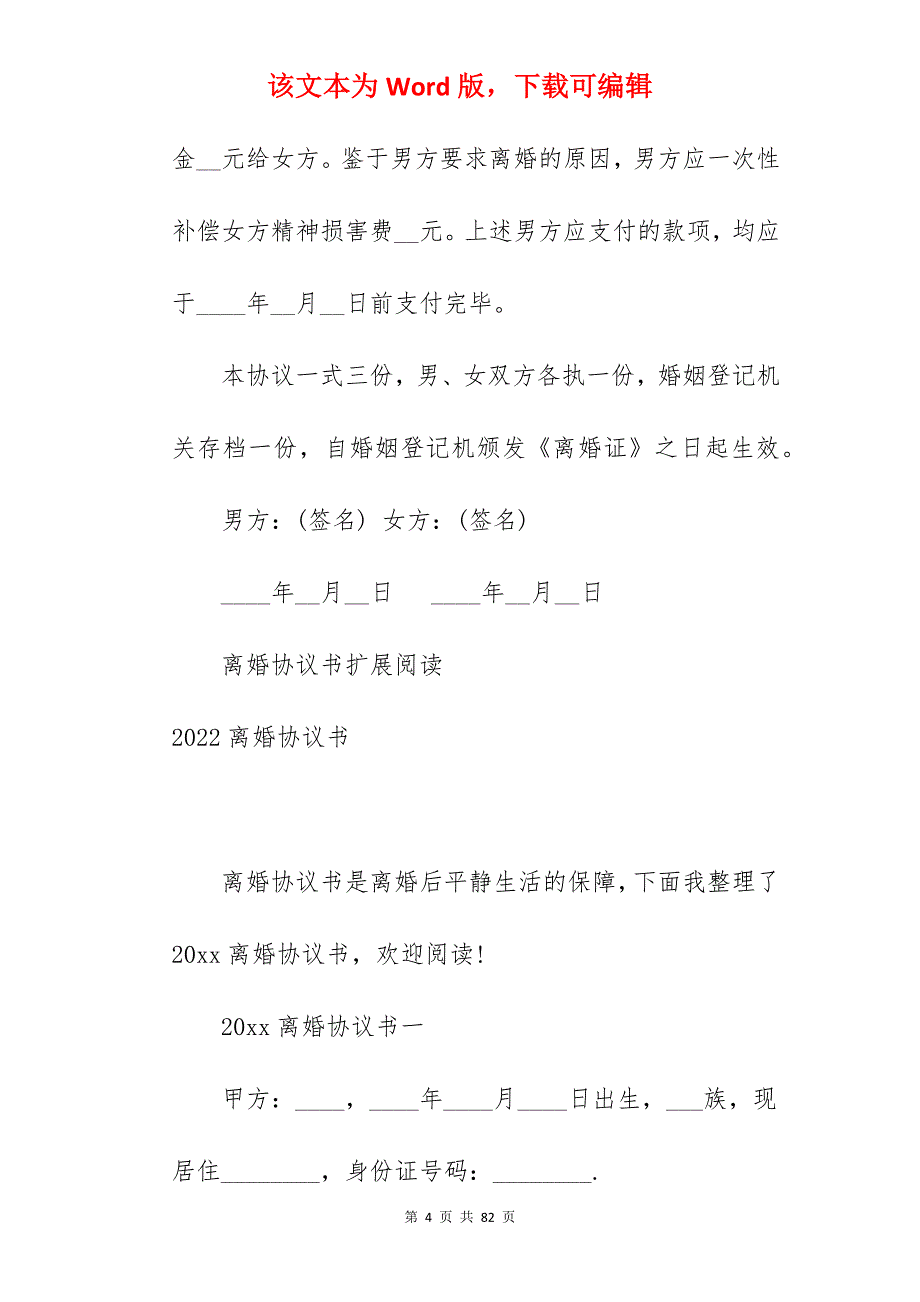 该文本为 Word 版，下载可编辑
金__元给女方。鉴于男方要求离婚的原因，男方应一次性
补偿女方精神损害费__元。上述男方应支付的款项，均应
于____年__月__日前支付完毕。
本协议一式三份，男、女双方各执一份，婚姻登记机
关存档一份，自婚姻登记机颁发《离婚证》之日起生效。
男方：(签名) 女方：(签名)
____年__月__日 ____年__月__日
离婚协议书扩展阅读
2022 离婚协议书
离婚协议书是离婚后平静生活的保障，下面我整理了
20xx 离婚协议书，欢迎阅读!
20xx 离婚协议书一
甲方：____，____年____月____日出生，___族，现
居住________，身份证号码：________.
第 4 页 共 82 页